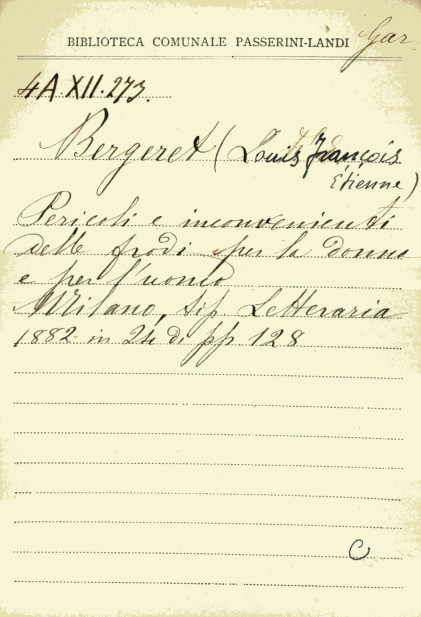 BIBLIOTECA COMUNALE PASSERINI-LANDI Gar
4A XII. 273.
Bergeret (Louis François
Étienne)
Pericoli e inconvenienti
delle frodi per la donna
e per l'uomo
Milano, tip Letteraria
1882 in 24 di pp 128
C